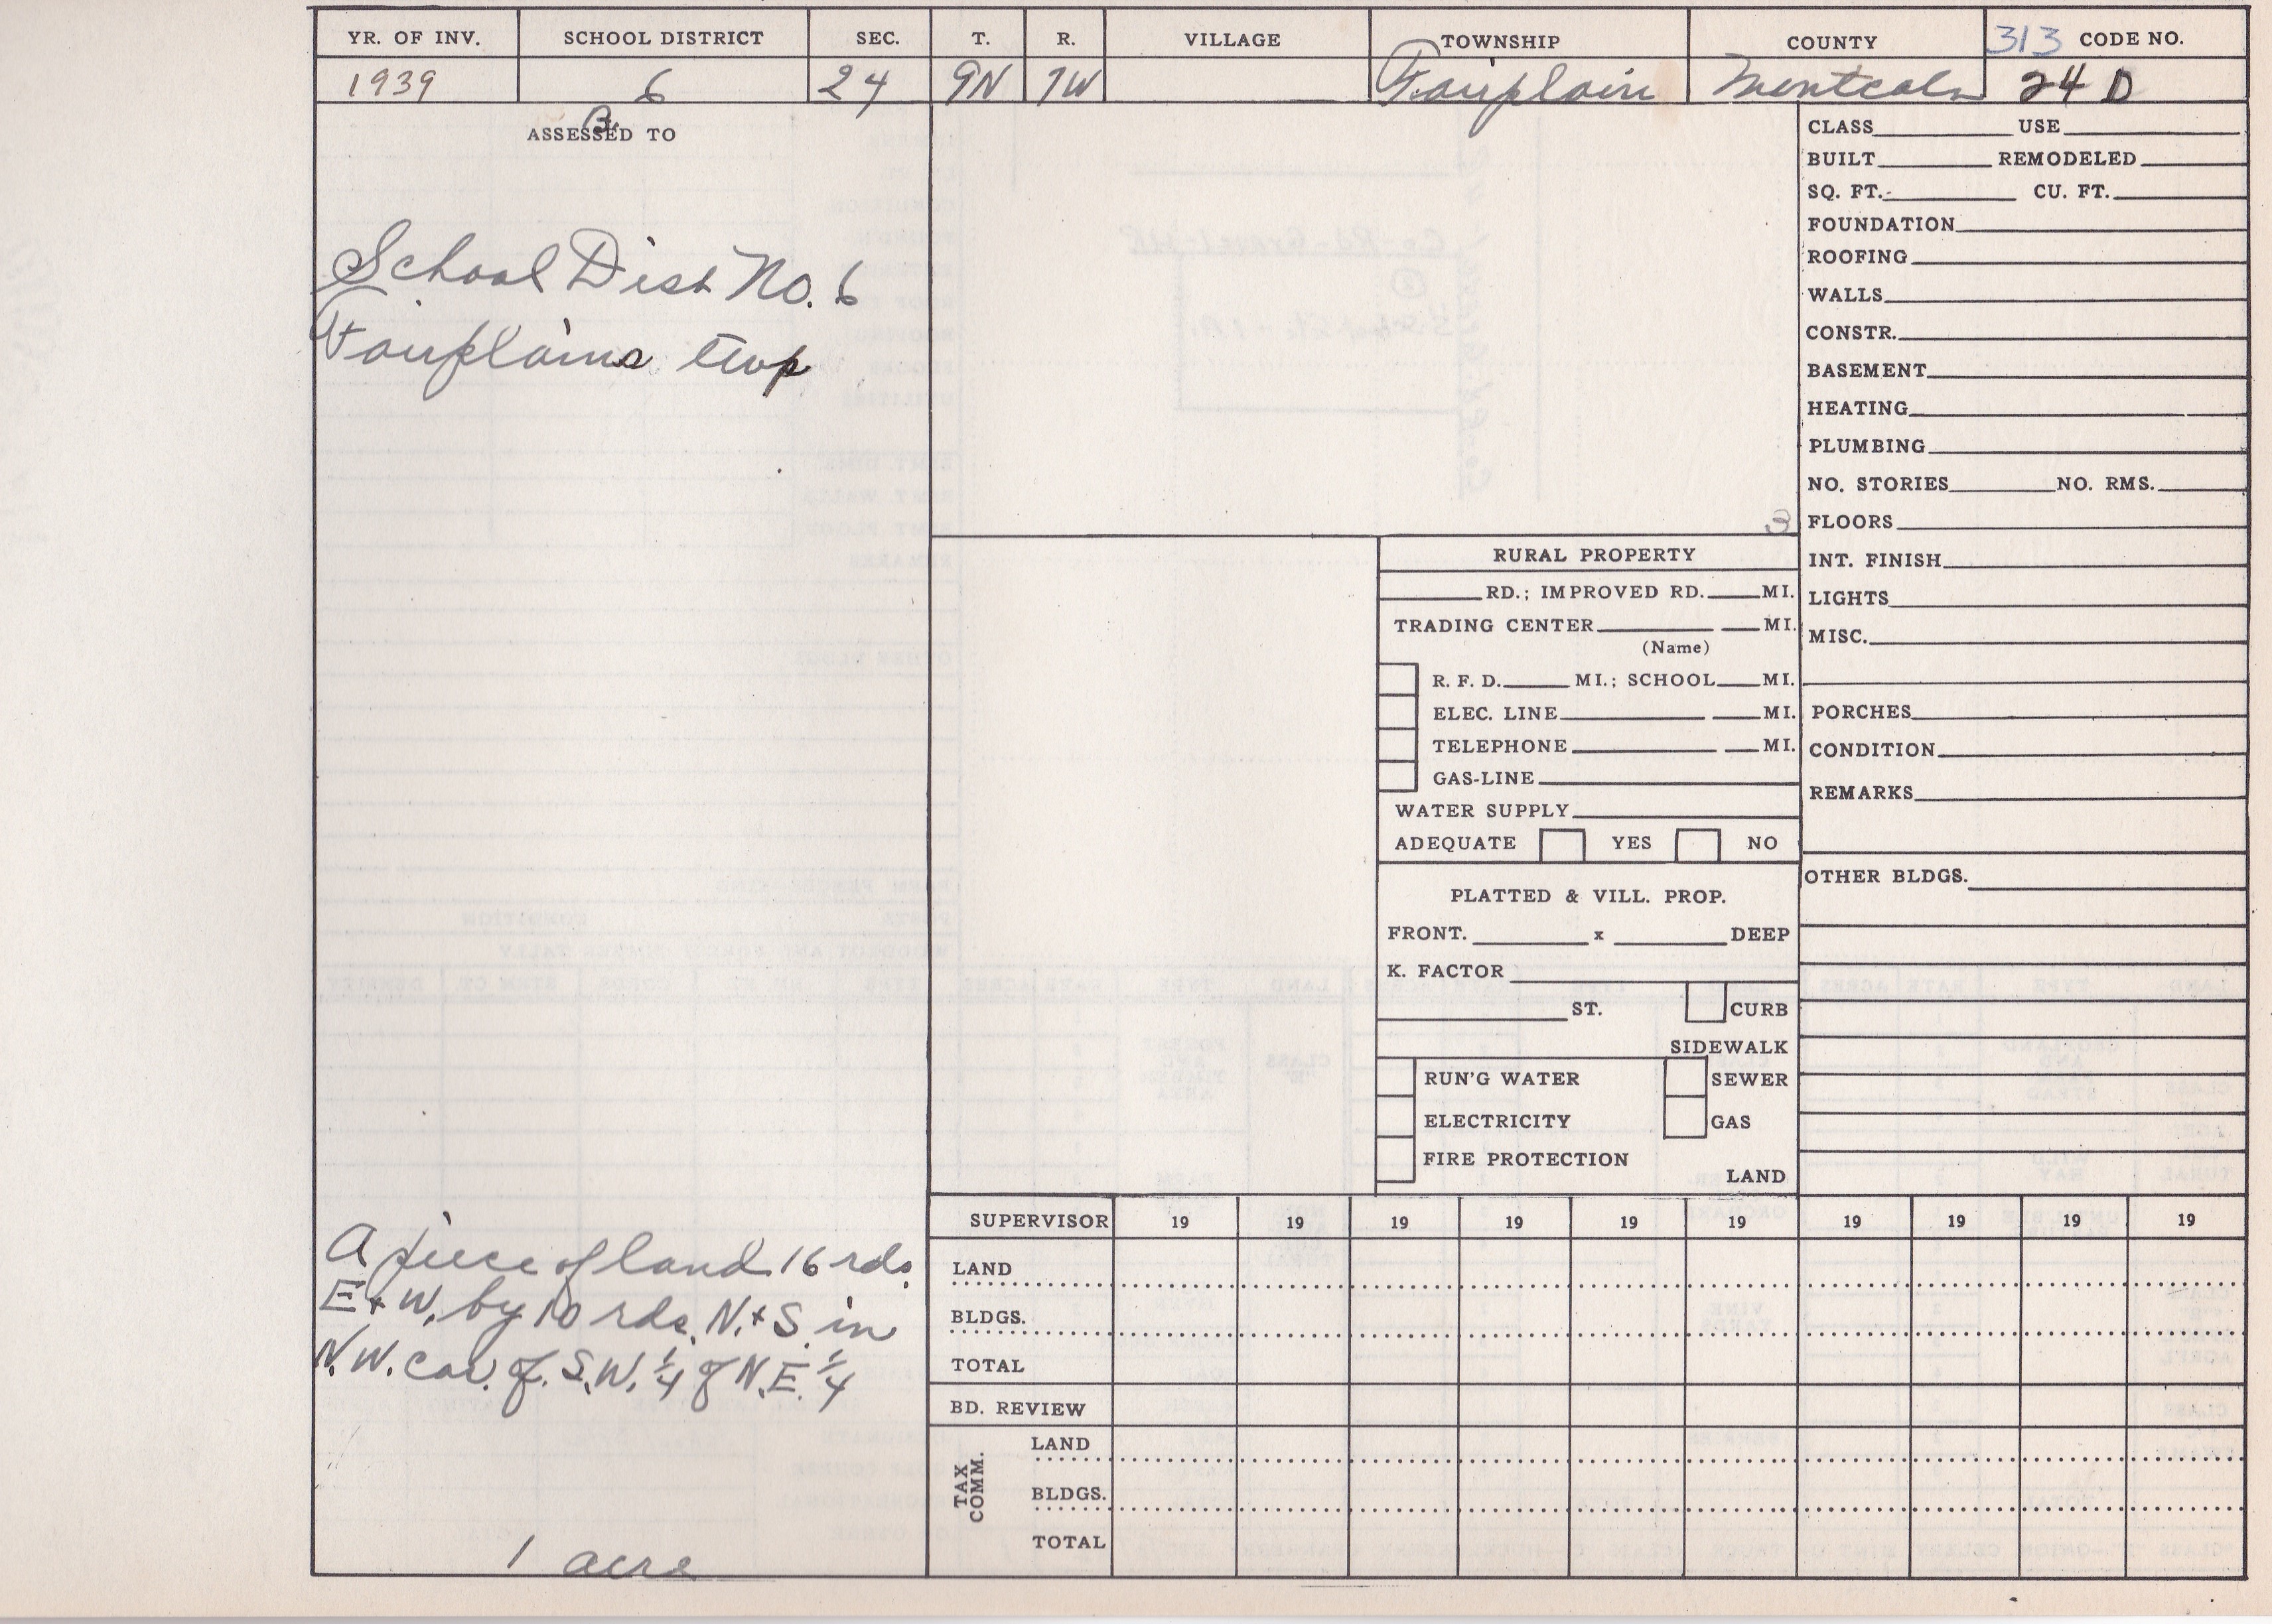 YR. OF INV. SCHOOL DISTRICT SEC. T. R. VILLAGE TOWNSHIP COUNTY 313 CODE NO.
1939 6 24 9N 7W Fairplain Montcalm 24 D
B.
ASSESSED TO
School Dist No. 6
Fairplains twp
A piece of land 16 rds.
E + W. by 10 rds. N. + S. in
N.W. cor. of S.W. 1/4 of N.E. 1/4
1 acre
3
RURAL PROPERTY
RD.; IMPROVED RD. MI.
TRADING CENTER MI.
(Name)
R. F. D. MI.; SCHOOL MI.
ELEC. LINE MI.
TELEPHONE MI.
GAS-LINE
WATER SUPPLY
ADEQUATE YES NO
PLATTED & VILL. PROP.
FRONT. x DEEP
K. FACTOR
ST. CURB
SIDEWALK
RUN'G WATER SEWER
ELECTRICITY GAS
FIRE PROTECTION
LAND
CLASS USE
BUILT REMODELED
SQ. FT. CU. FT.
FOUNDATION
ROOFING
WALLS
CONSTR.
BASEMENT
HEATING
PLUMBING
NO. STORIES NO. RMS.
FLOORS
INT. FINISH
LIGHTS
MISC.
PORCHES
CONDITION
REMARKS
OTHER BLDGS.
SUPERVISOR 19 19 19 19 19 19 19 19 19 19
LAND
BLDGS.
TOTAL
BD. REVIEW
TAX COMM.
LAND
BLDGS.
TOTAL